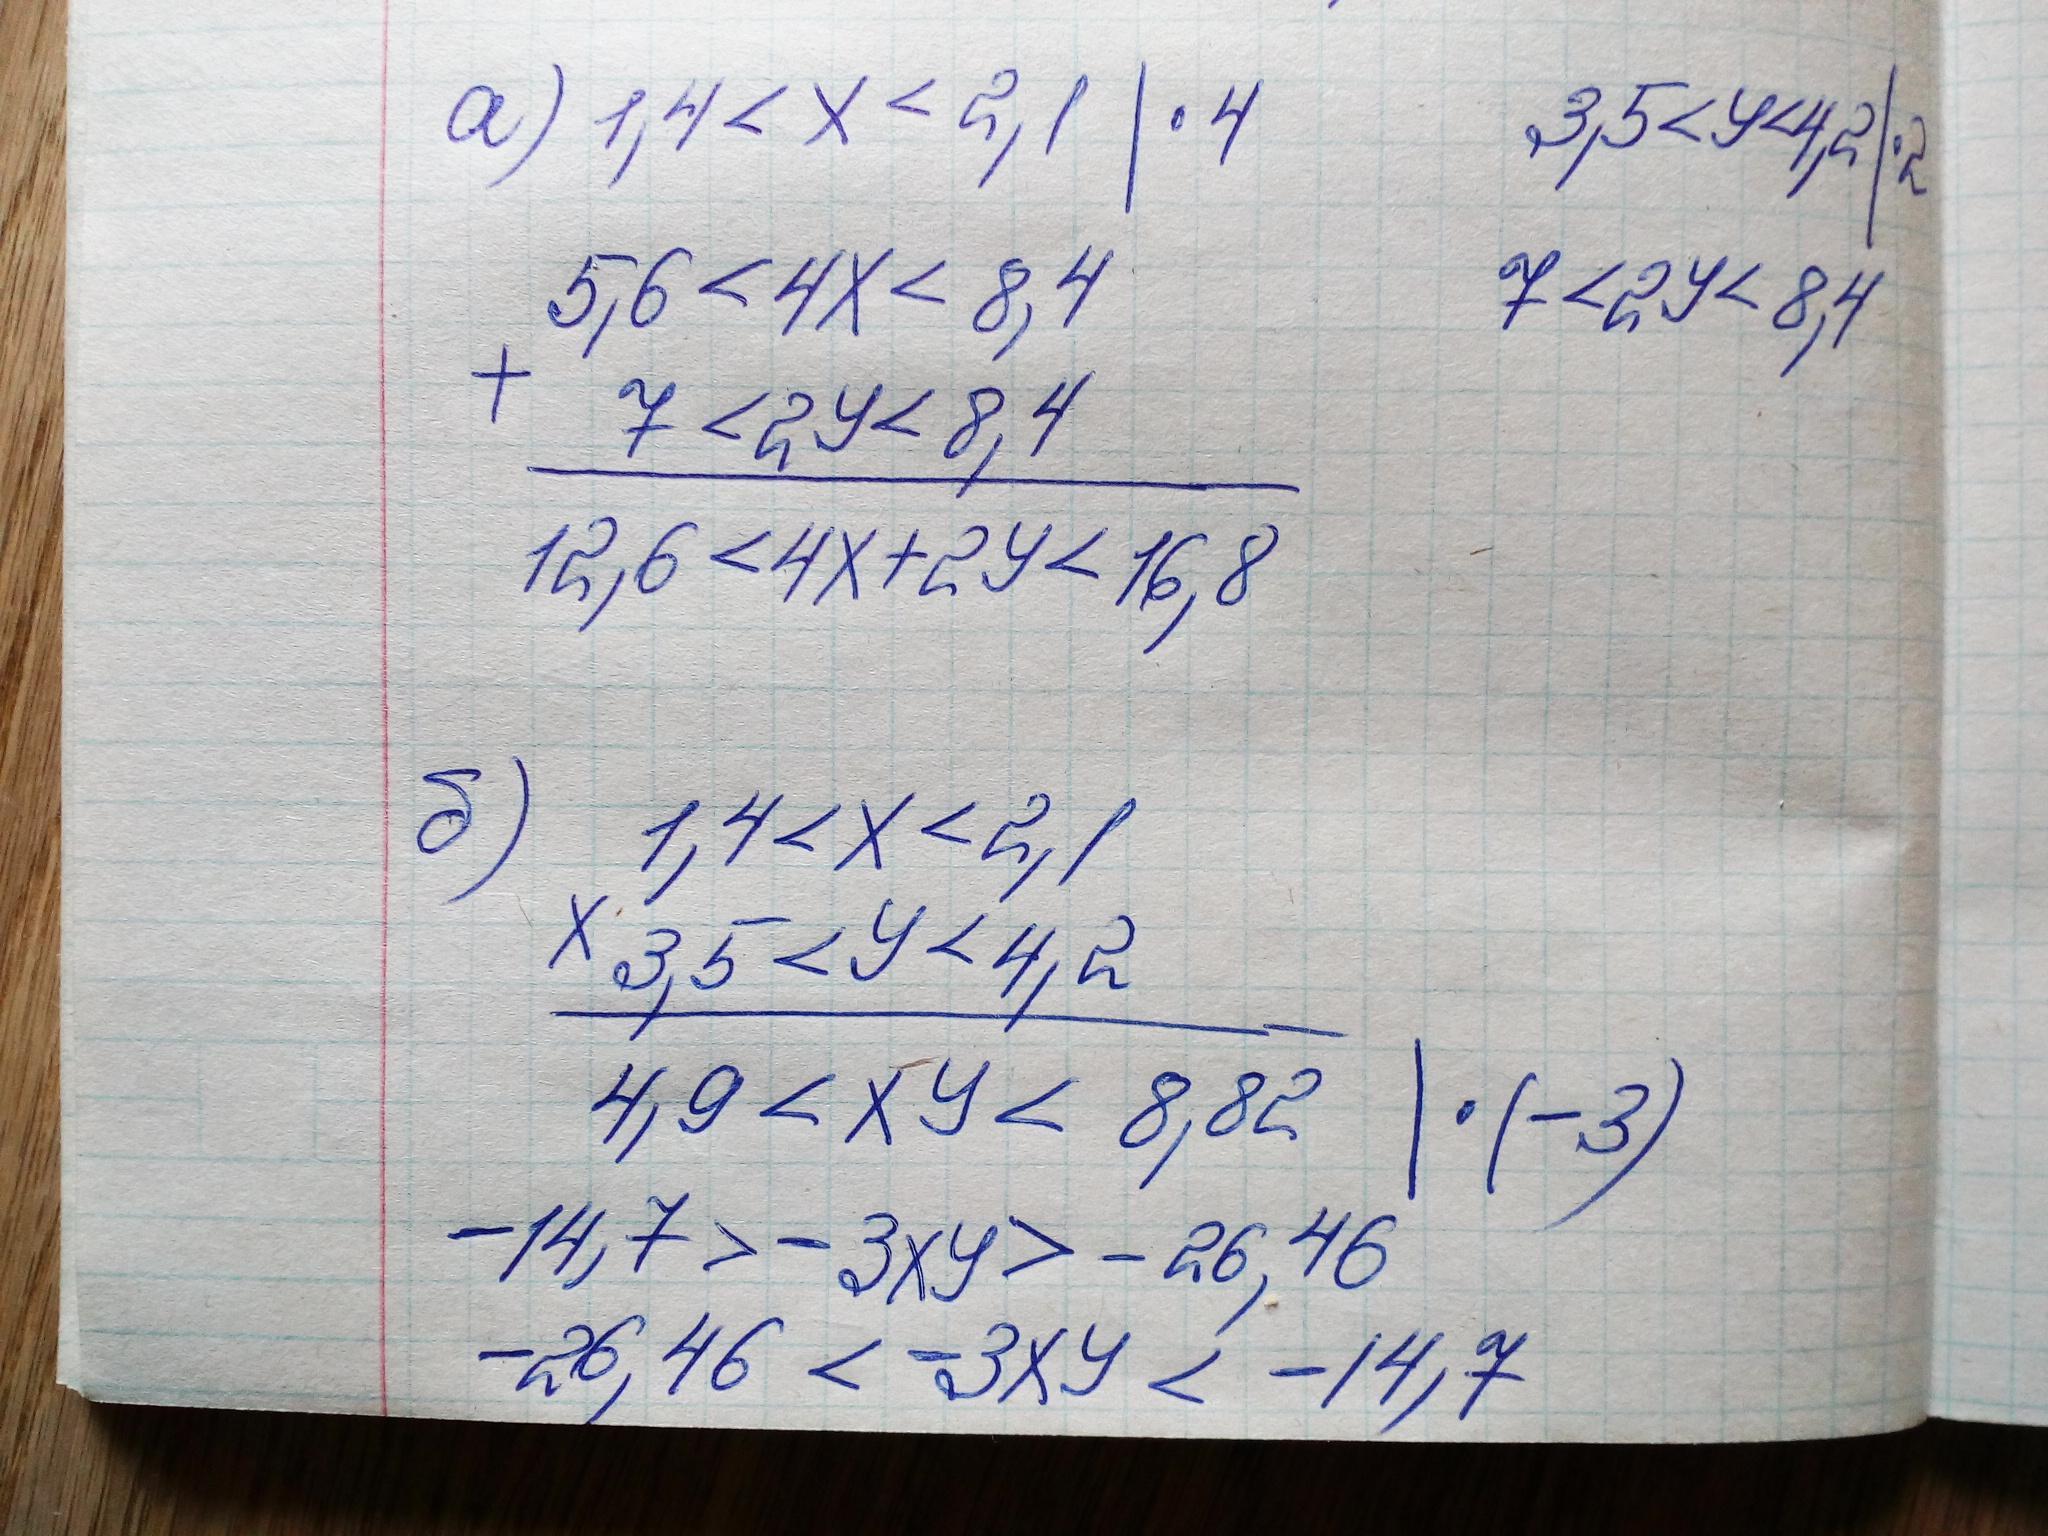 а) 1,4 < x < 2,1 | · 4
3,5 < y < 4,2 | · 2
5,6 < 4x < 8,4
7 < 2y < 8,4
+ 7 < 2y < 8,4
12,6 < 4x + 2y < 16,8
б) 1,4 < x < 2,1
x 3,5 < y < 4,2
4,9 < xy < 8,82 | · (-3)
-14,7 > -3xy > -26,46
-26,46 < -3xy < -14,7